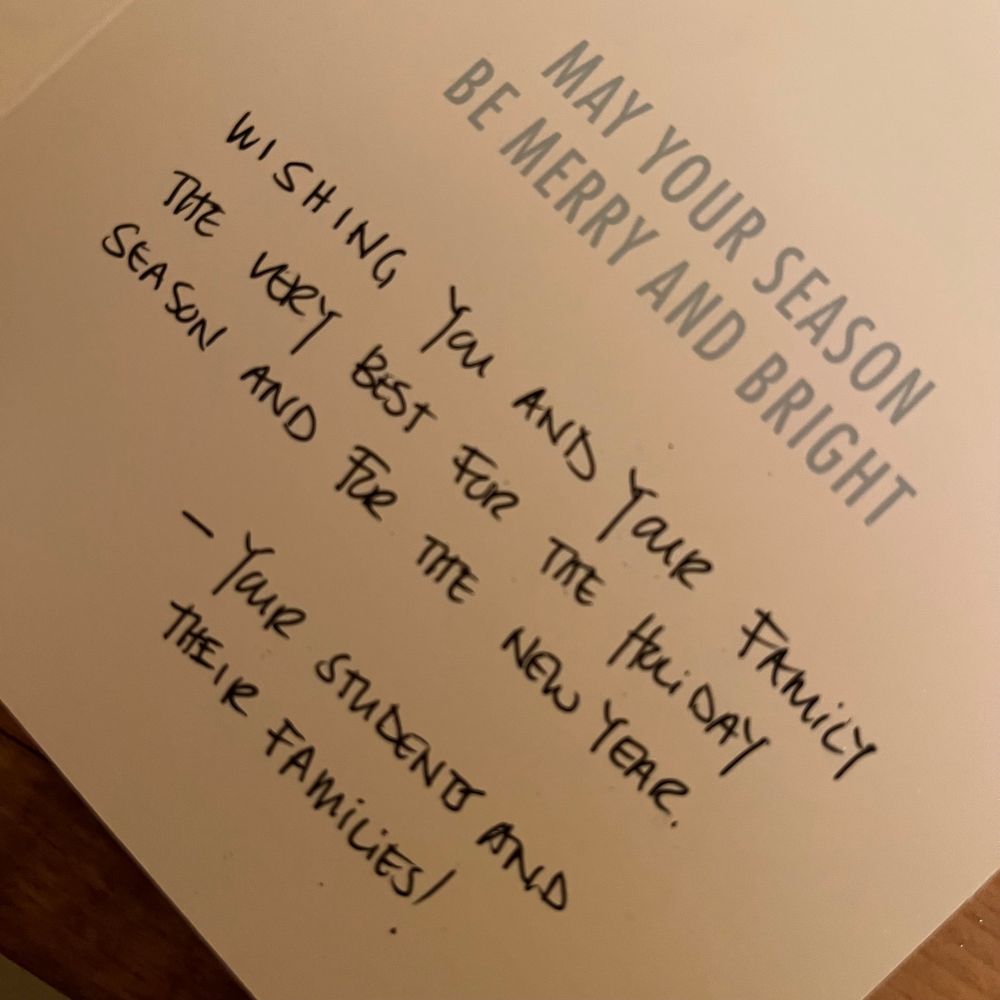 MAY YOUR SEASON
BE MERRY AND BRIGHT
WISHING YOU AND YOUR FAMILY
THE VERY BEST FOR THE HOLIDAY
SEASON AND FOR THE NEW YEAR.
- YOUR STUDENTS AND
THEIR FAMILIES!